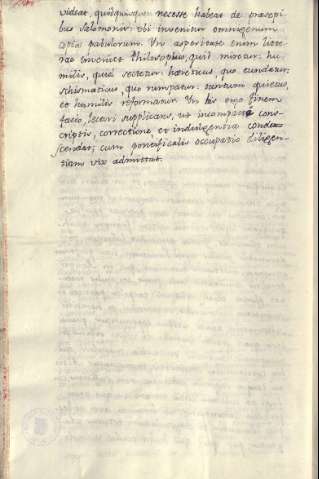 videat, quisquisquam necesse habeat de praesepi-
bus Salomonis, ubi invenitur omnigenum
copia pabulorum. In asperitate enim litte-
rae inveniet Philosophus, quod miretur: hu-
milis, quod sectetur: haereticus, quo eundatur:
schismaticus, quo rumpatur: nuntium quietus,
et humilis reformamen. In his ergo finem
facio, lectori supplicans, ut incompte cons-
criptis, correctione et indulgentia condes-
cendat; cum pontificalis occupatio diligen-
tiam vix admittat.